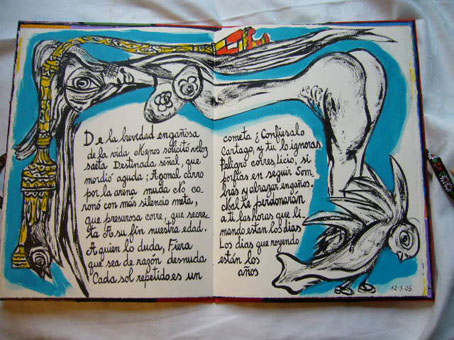 De la brevedad engañosa
de la vida Menos solicitó veloz
saeta Destinada señal, que
mordió aguda; Agonal carro
por la arena muda No co
ronó con más silencio meta,
que presurosa corre, que secre
ta A su fin nuestra edad.
A quien lo duda, Fiera
que sea de razón desnuda
Cada sol repetido es un
cometa ¿ Confiésalo
Cartago y tu lo ignoras
Peligro corres, licio, si
porfías en seguir Som
bras y abrazar engaños.
Mal te perdonarán
a ti las horas que li
mando están los días
Los días que royendo
están los
años